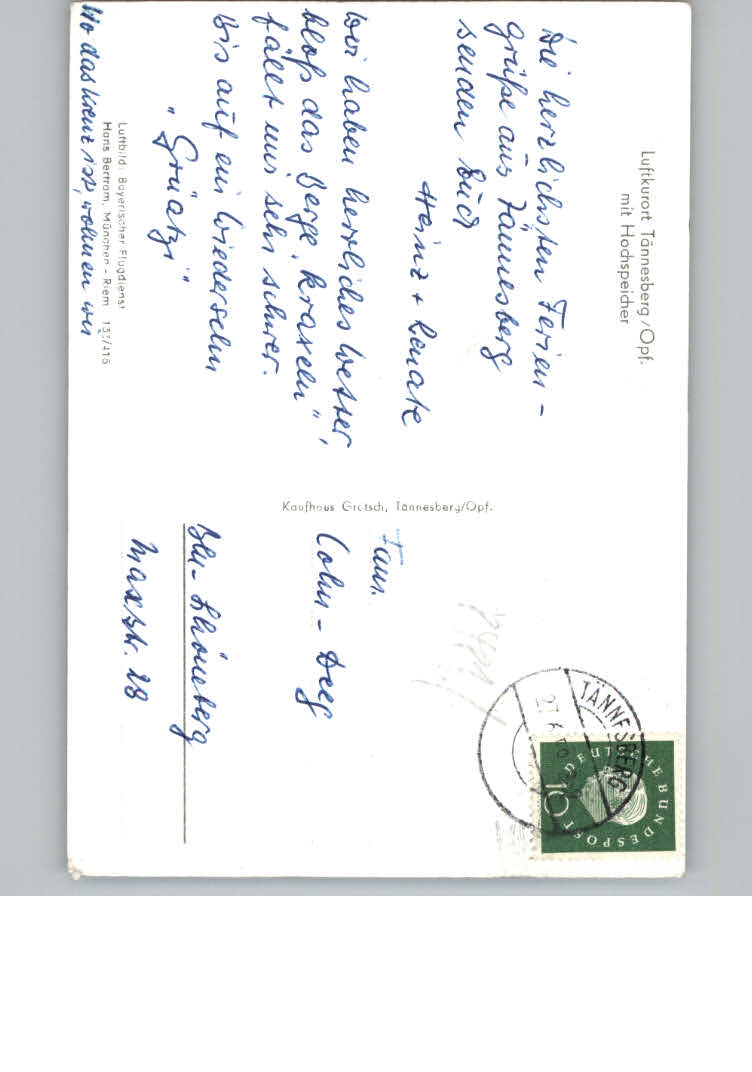 Luftkurort Tännesberg/Opf.
mit Hochspeicher
Die herzlichsten Ferien-
grüße aus Tännesberg
senden Euch
Heinz + Renate
Wir haben herrliches Wetter,
bloß das Berge "kraxeln"
fällt uns sehr schwer.
Bis auf ein Wiedersehn
"Grüatzi"
Luftbild: Bayerischer Flugdienst
Hans Bertram, München - Riem
Wo das Kreuz ist, wohnen wir
Kaufhaus Grötsch, Tännesberg/Opf.
Fam.
Cohn - Deeg
Bln - Schöneberg
Maxstr. 28
TÄNNESBERG
DEUTSCHE BUNDESPOST
10